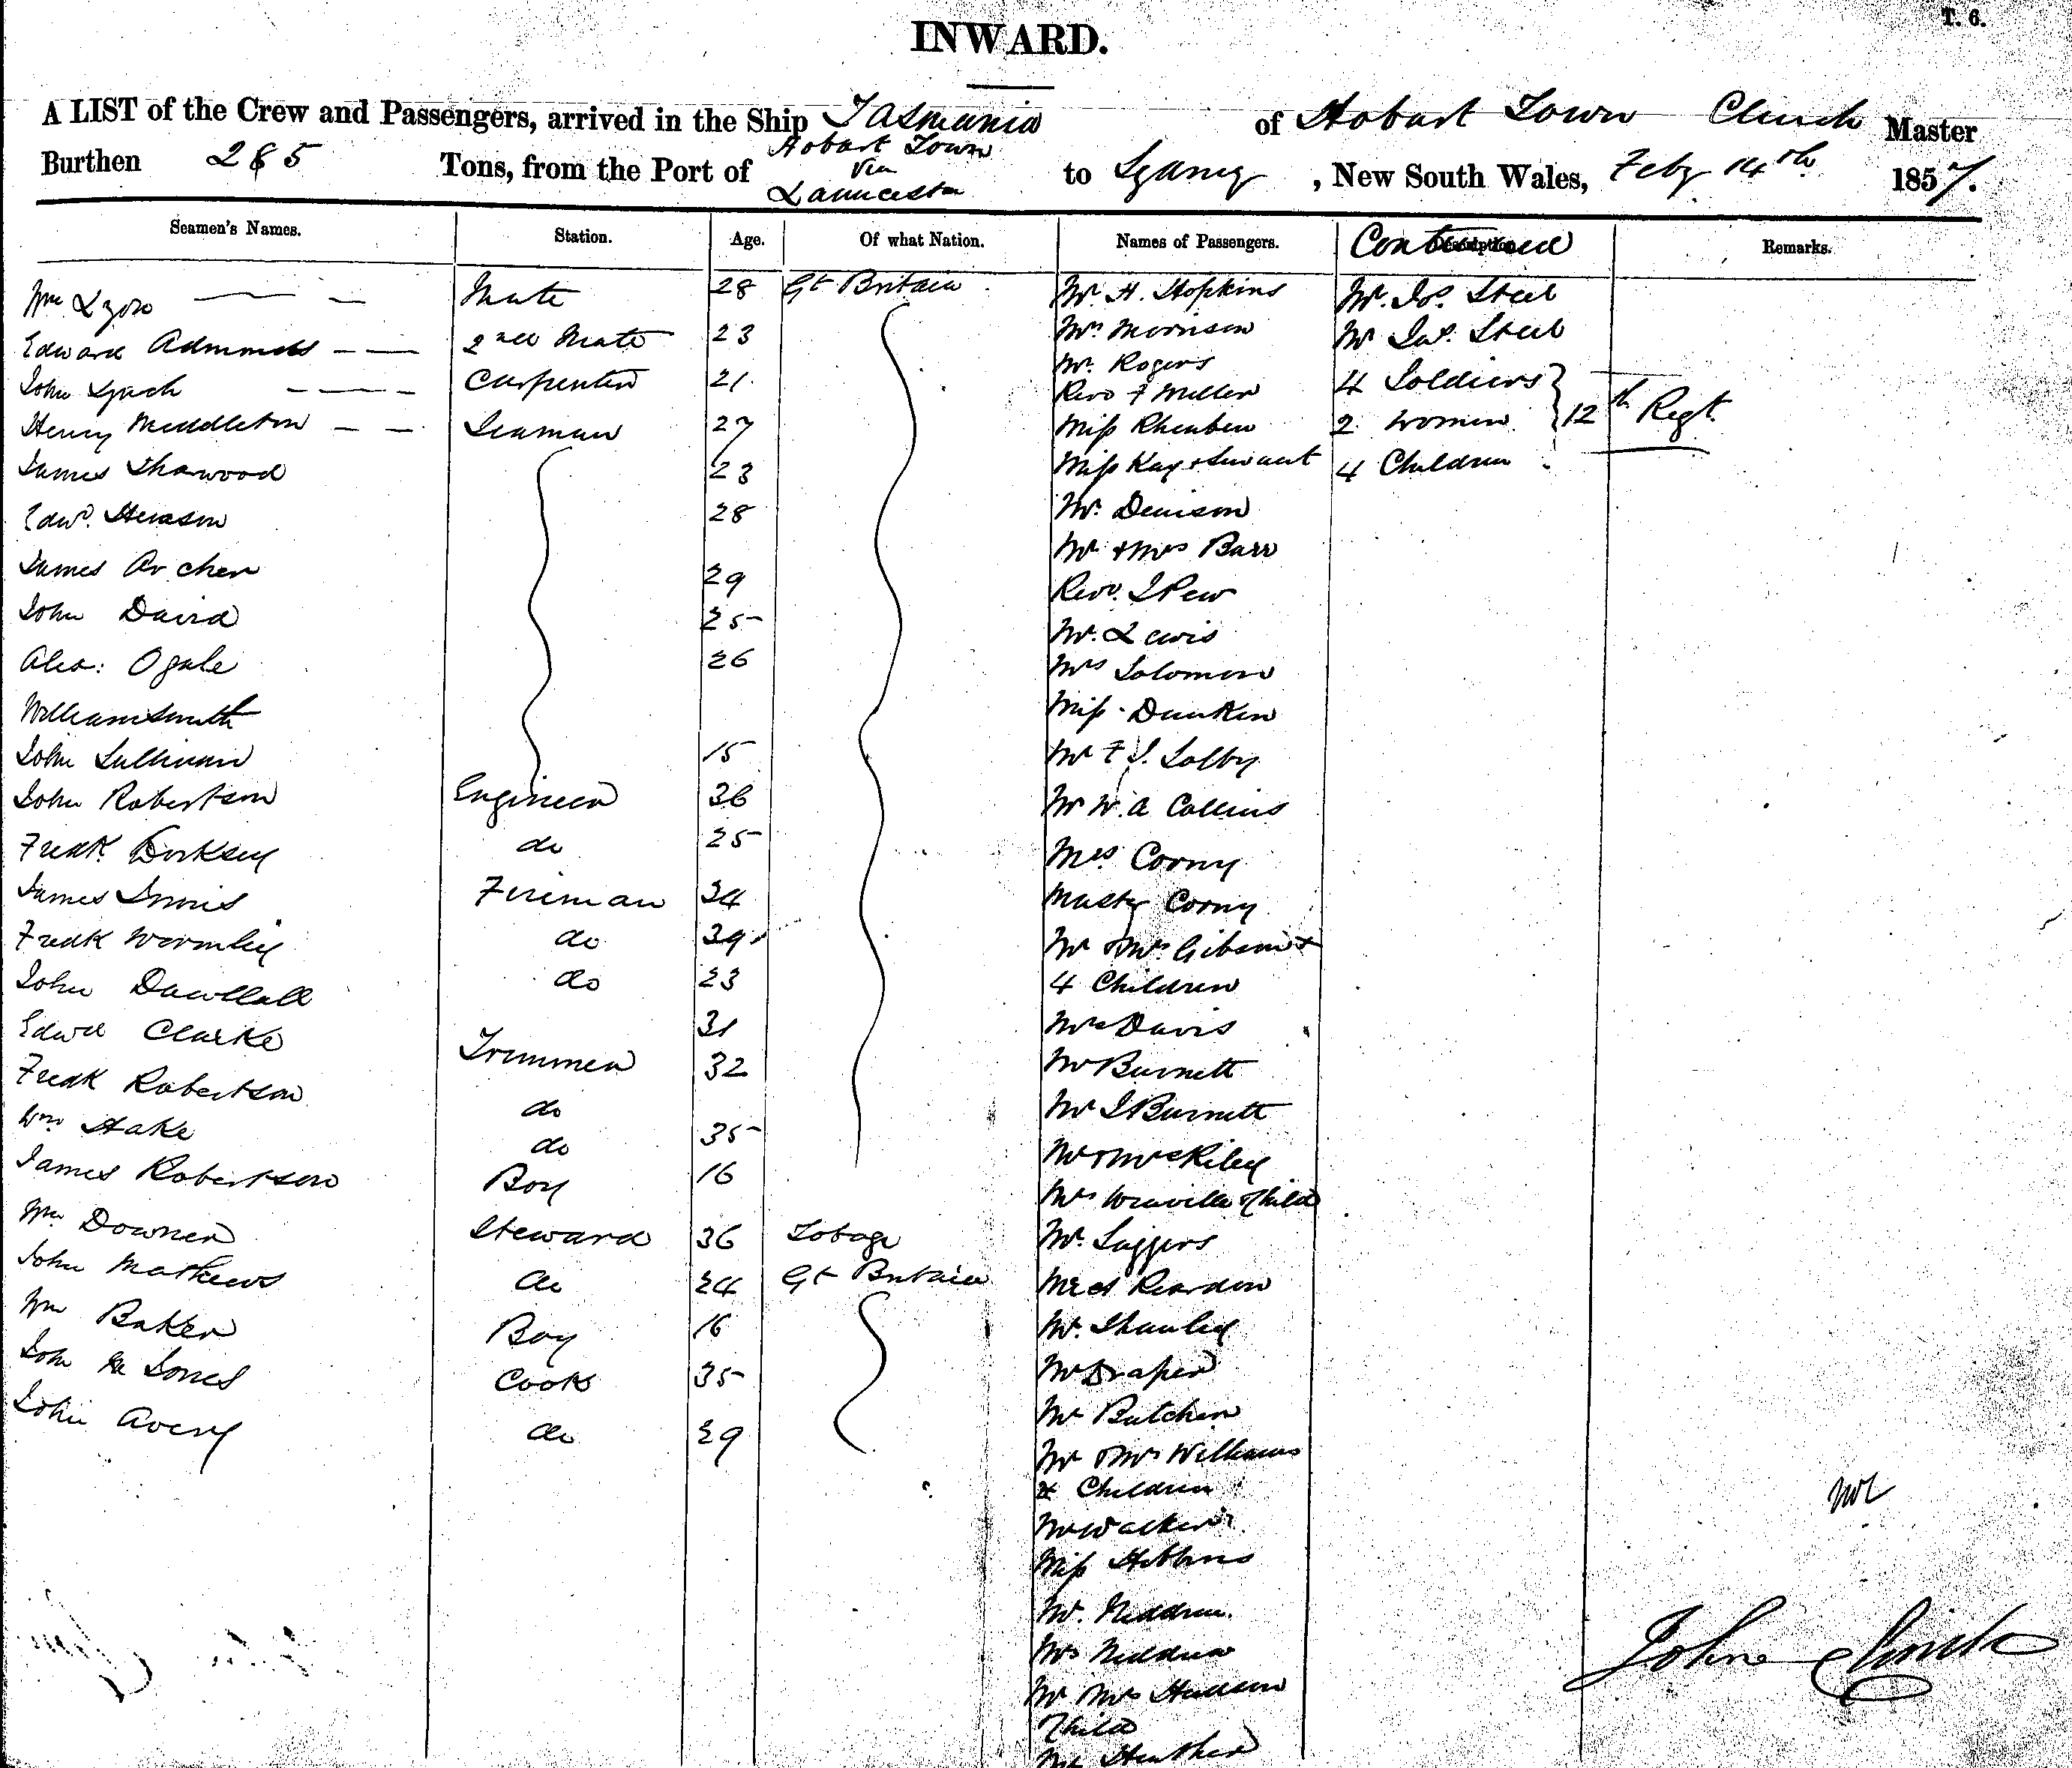 T. 6.
INWARD.
A LIST of the Crew and Passengers, arrived in the Ship Tasmania of Hobart Town Clinch Master
Burthen 285 Tons, from the Port of Hobart Town via Launceston to Sydney, New South Wales, Feby 14th 1857.
Seamen's Names. Station. Age. Of what Nation. Names of Passengers. Continued Remarks.
Wm Lyon Mate 28 Gt Britain Mr H. Hopkins Mr. Jos. Steel
Edward 2nd Mate 23 Mrs Morrison Mr Jas. Steel
Mr. Rogers
John Lynch Carpenter 21 Revd F Miller 4 Soldiers
Henry Middleton Seaman 27 Miss Rheuben 2 Women 12th Regt
James Sharwood 23 Miss Kay & Servant 4 Children
Edwd. 28 Mr. Denison
Mr & Mrs Barr
James Archer 29 Revd. I Pew
John David 25 Mr. Lewis
Alex: Ogale 26 Mrs Solomon
William Smith Miss Dunken
John Sullivan 15 Mr F J. Solby
John Robertson Engineer 36 Mr W. A Collins
Fredk. Dorksey do 25 Mrs Corny
James Fireman 34 Master Corny
Fredk Wormley do 39 Mr & Mrs Gibson &
John do 23 4 Children
Edwd Clarke 31 Mrs Davis
Fredk Robertson Trimmer 32 Mr Burnett
do Mr J Burnett
Wm Hake do 35 Mr & Mrs Riley
James Robertson Boy 16 Mrs & Child
Wm Downer Steward 36 Tobago Mr. Suggers
John Mathews do 24 Gt Britain Reardon
Wm Baker Boy 16 Mr. Stanley
John Jones Cook 35 Mr Draper
John Avery do 29 Mr Butcher
Mr & Mrs Williams
Children
Mr Walker
Miss Stebbins
Mr. Niddrie
Mrs Niddrie
Mr Mrs Hudson
& Child
John Clinch